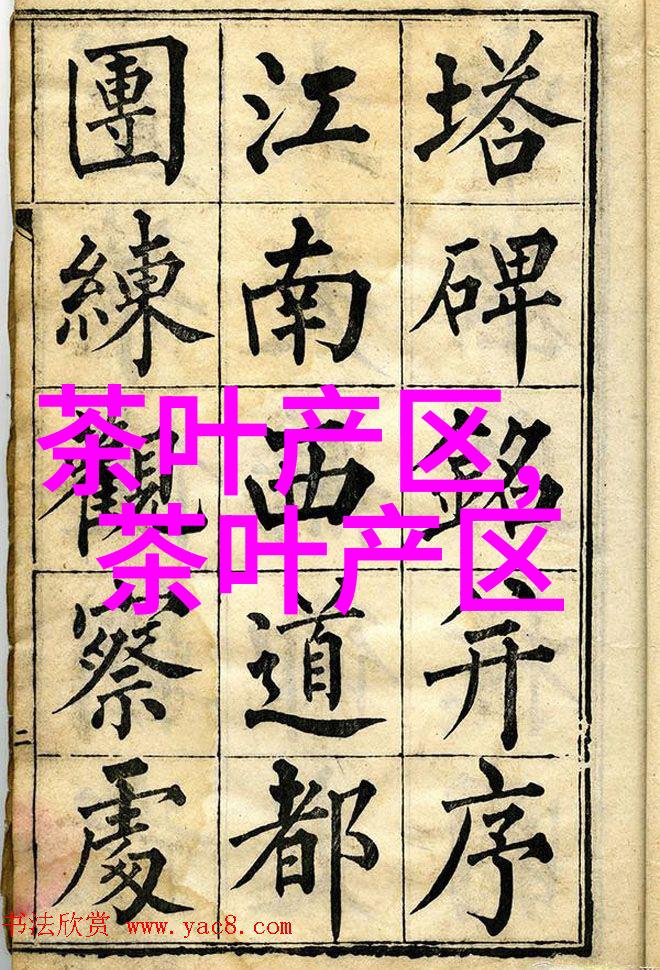 塔碑銘并序
江南西道都
團練觀察處
二
茶叶产区,
茶叶产区
书法欣赏 www.yac8.com